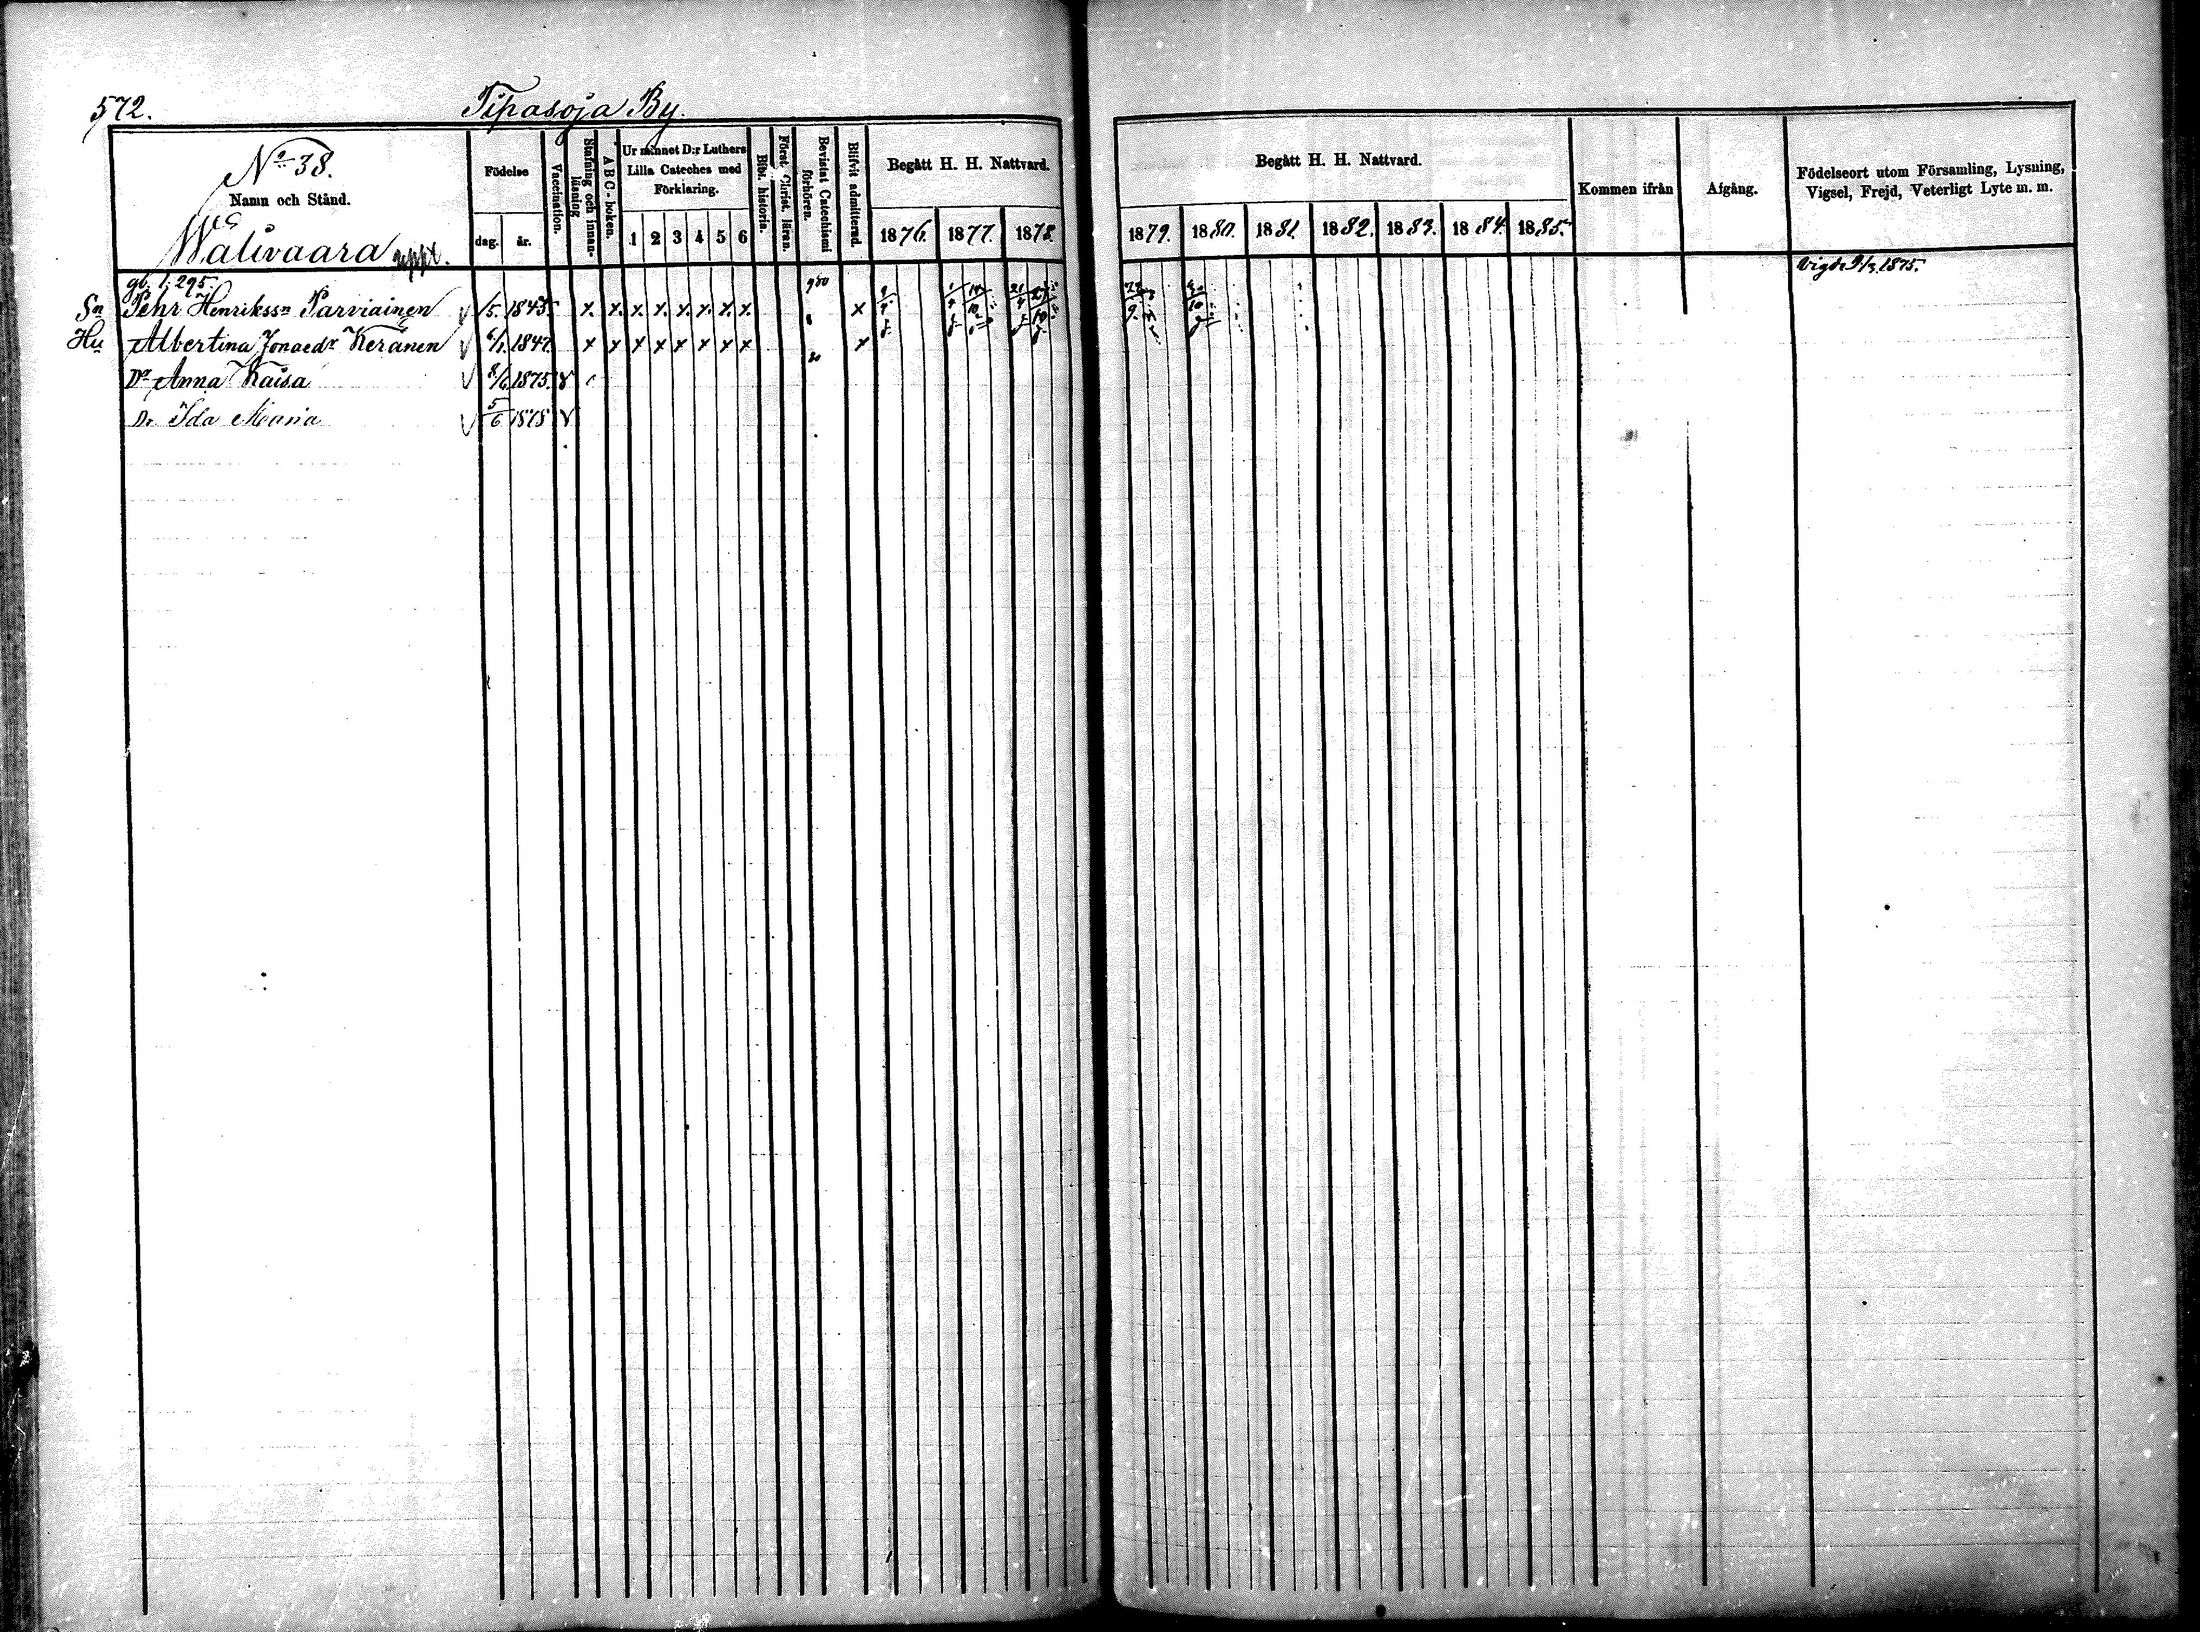 572. Tipasoja By.
No 38.
Namn och Stånd.
Walivaara
Födelse
dag. år.
Vaccination.
Stafning och innanläsning
A B C-boken.
Ur minnet D:r Luthers Lilla Cateches med Förklaring.
1 2 3 4 5 6
Bibl. historia.
Först. Christ. läran.
Bevistat Catechismi förhören.
Blifvit admitterad.
Begått H. H. Nattvard.
1876. 1877. 1878.
Begått H. H. Nattvard.
1879. 1880. 1881. 1882. 1883. 1884. 1885.
Kommen ifrån
Afgång.
Födelseort utom Församling, Lysning, Vigsel, Frejd, Veterligt Lyte m. m.
gb. 1. 295. Vigde 9/3 1875.
Sn Pehr Henrikssn Parviainen 1/5. 1843. x. x. x. x. x. x. x. x. x
Hu Albertina Jonaedr Keränen 6/1. 1847. x x x x x x x x x
Dr Anna Kaisa 8/6. 1875.
Dr Ida Maria 5/6 1878